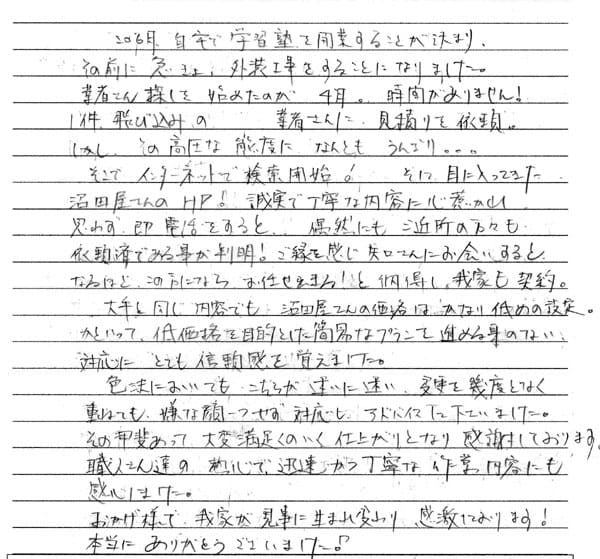 2016年 自宅で学習塾を開業することが決まり、
その前に急きょ、外装工事をすることになりました。
業者さん探しを始めたのが 4月。時間がありません!
1件、飛び込みの 業者さんに、見積りを依頼。
しかし、その高圧な態度に なんとも うんざり...
そこで インターネットで検索開始! そして目に入ってきた
沼田屋さんのHP! 誠実で丁寧な内容に心惹かれ
思わず即電話をすると、偶然にも ご近所の方々も
依頼済である事が判明! ご縁を感じ 矢口さんにお会いすると
なるほど、この方になら お任せ出来る!と納得し、我家も契約。
大手と同じ内容でも 沼田屋さんの価格は かなり低めの設定。
かといって、低価格を目的とした簡易なプランを進める事のない、
対応に とても信頼感を覚えました。
色決においても、こちらが迷いに迷い、変更を幾度となく
重ねても、嫌な顔一つせず 対応し、アドバイス下さいました。
その甲斐あって 大変満足くのいく仕上がりとなり 感謝しております。
職人さん達の 熱心で、迅速かつ丁寧な作業内容にも
感心しました。
おかげ様で、我家が見事に生まれ変わり 感激しております!
本当に ありがとうございました!